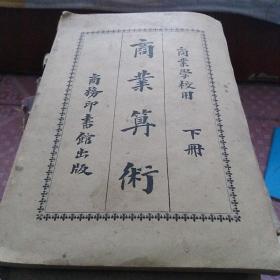 商業學校用 下冊
商業算術
商務印書館出版